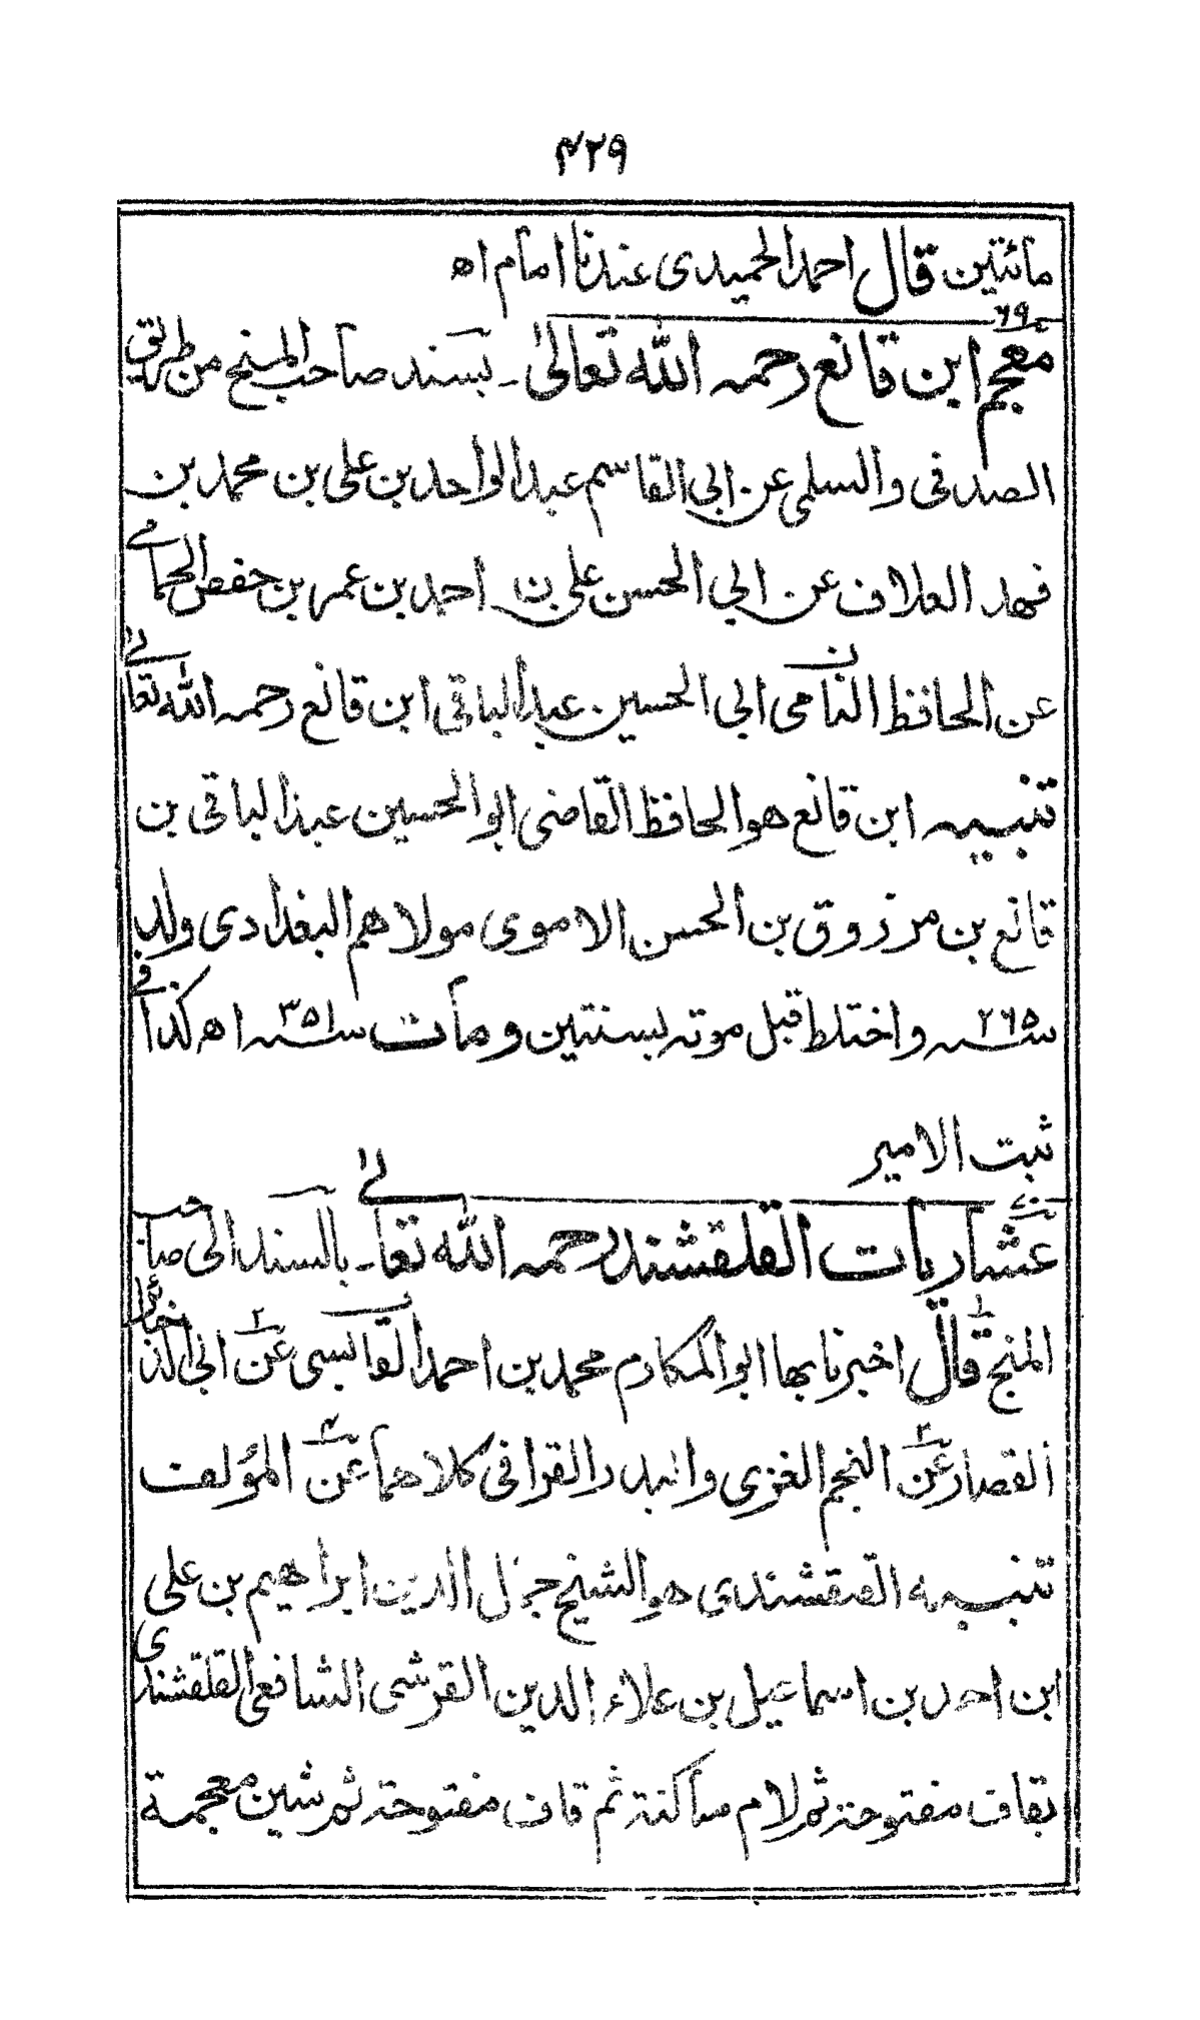 ۴۲۹
مائتين قال احمد الحميدى عندنا امام اه
۶۹
معجم ابن قانع رحمه الله تعالى ـ بسند صاحب المنح من طريق
الصدفى والسلمى عن ابى القاسم عبد الواحد بن على بن محمد بن
فهد العلاف عن ابى الحسن على بن احمد بن عمر بن حفص الحمامى
عن الحافظ النامى ابى الحسين عبد الباقى ابن قانع رحمه الله تعالى
تنبيه ابن قانع هو الحافظ القاضى ابو الحسين عبد الباقى بن
قانع بن مرزوق بن الحسن الاموى مولاهم البغدادى ولد
سنه ۲۶۵ واختلط قبل موته بسنتين ومات سنه ۳۵۱ اه كذا فى
ثبت الامير
عشاريات القلقشند رحمه الله تعالى ـ بالسند الى صاحب
المنح قال اخبرنا بها ابو المكارم محمد بن احمد القابسى عن ۲ ابى الذخائر
القصار عن ۳ النجم الغزى والبدر القرافى كلاهما عن ۴ المؤلف
تنبيه القلقشندى هو الشيخ جمال الدين ابراهيم بن على
ابن احمد بن اسماعيل بن علاء الدين القرشى الشافعى القلقشندى
بقاف مفتوحة ثم لام ساكنة ثم قاف مفتوحة ثم شين معجمة